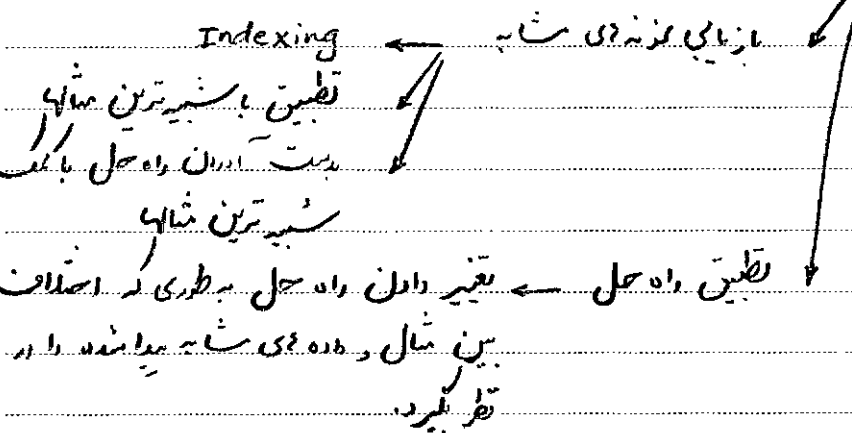 بازیابی نمونه‌های مشابه ← Indexing
تطبیق با شبیه‌ترین مثالها
بدست آوردن راه حل با کمک
شبیه‌ترین مثالها
تطبیق راه حل ← تغییر دادن راه حل به طوری که اختلاف
بین مثال و داده‌های مشابه پیدا شده را در
نظر بگیرد.